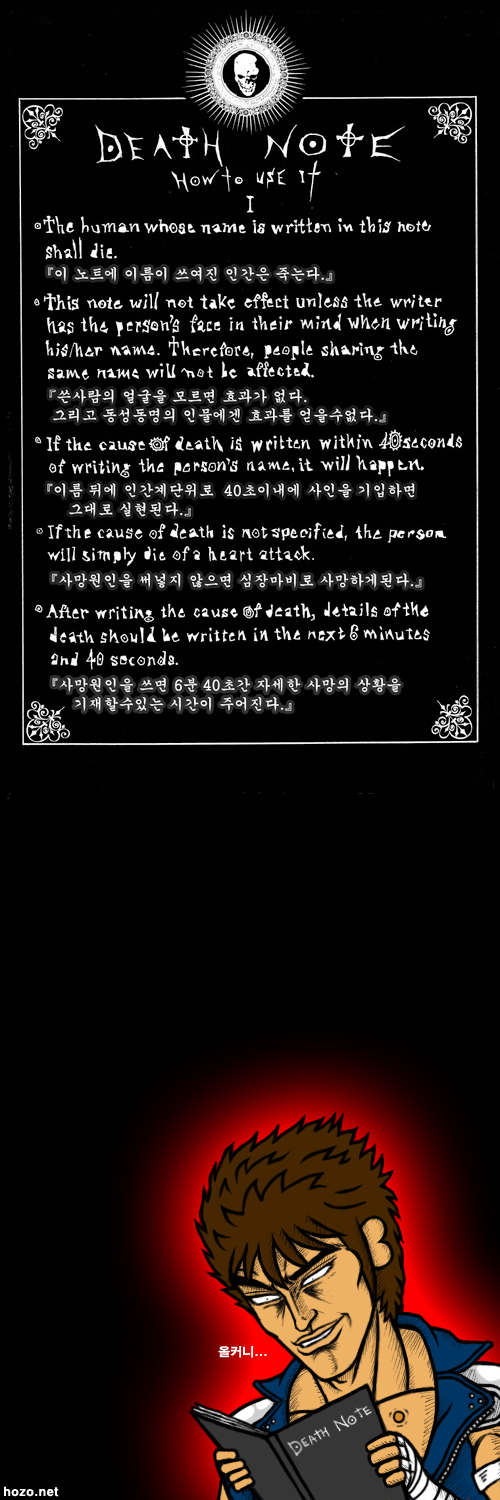 DEATH NOTE
HOW to USE It
I
The human whose name is written in this note
shall die.
『이 노트에 이름이 쓰여진 인간은 죽는다.』
This note will not take effect unless the writer
has the person's face in their mind when writing
his/her name. Therefore, people sharing the
same name will not be affected.
『쓴사람의 얼굴을 모르면 효과가 없다.
그리고 동성동명의 인물에겐 효과를 얻을수없다.』
If the cause of death is written within 40seconds
of writing the person's name, it will happen.
『이름 뒤에 인간계단위로 40초이내에 사인을 기입하면
그대로 실현된다.』
If the cause of death is not specified, the person
will simply die of a heart attack.
『사망원인을 써넣지 않으면 심장마비로 사망하게된다.』
After writing the cause of death, details of the
death should be written in the next 6 minutes
and 40 seconds.
『사망원인을 쓰면 6분 40초간 자세한 사망의 상황을
기재할수있는 시간이 주어진다.』
올커니...
DEATH NOTE
hozo.net